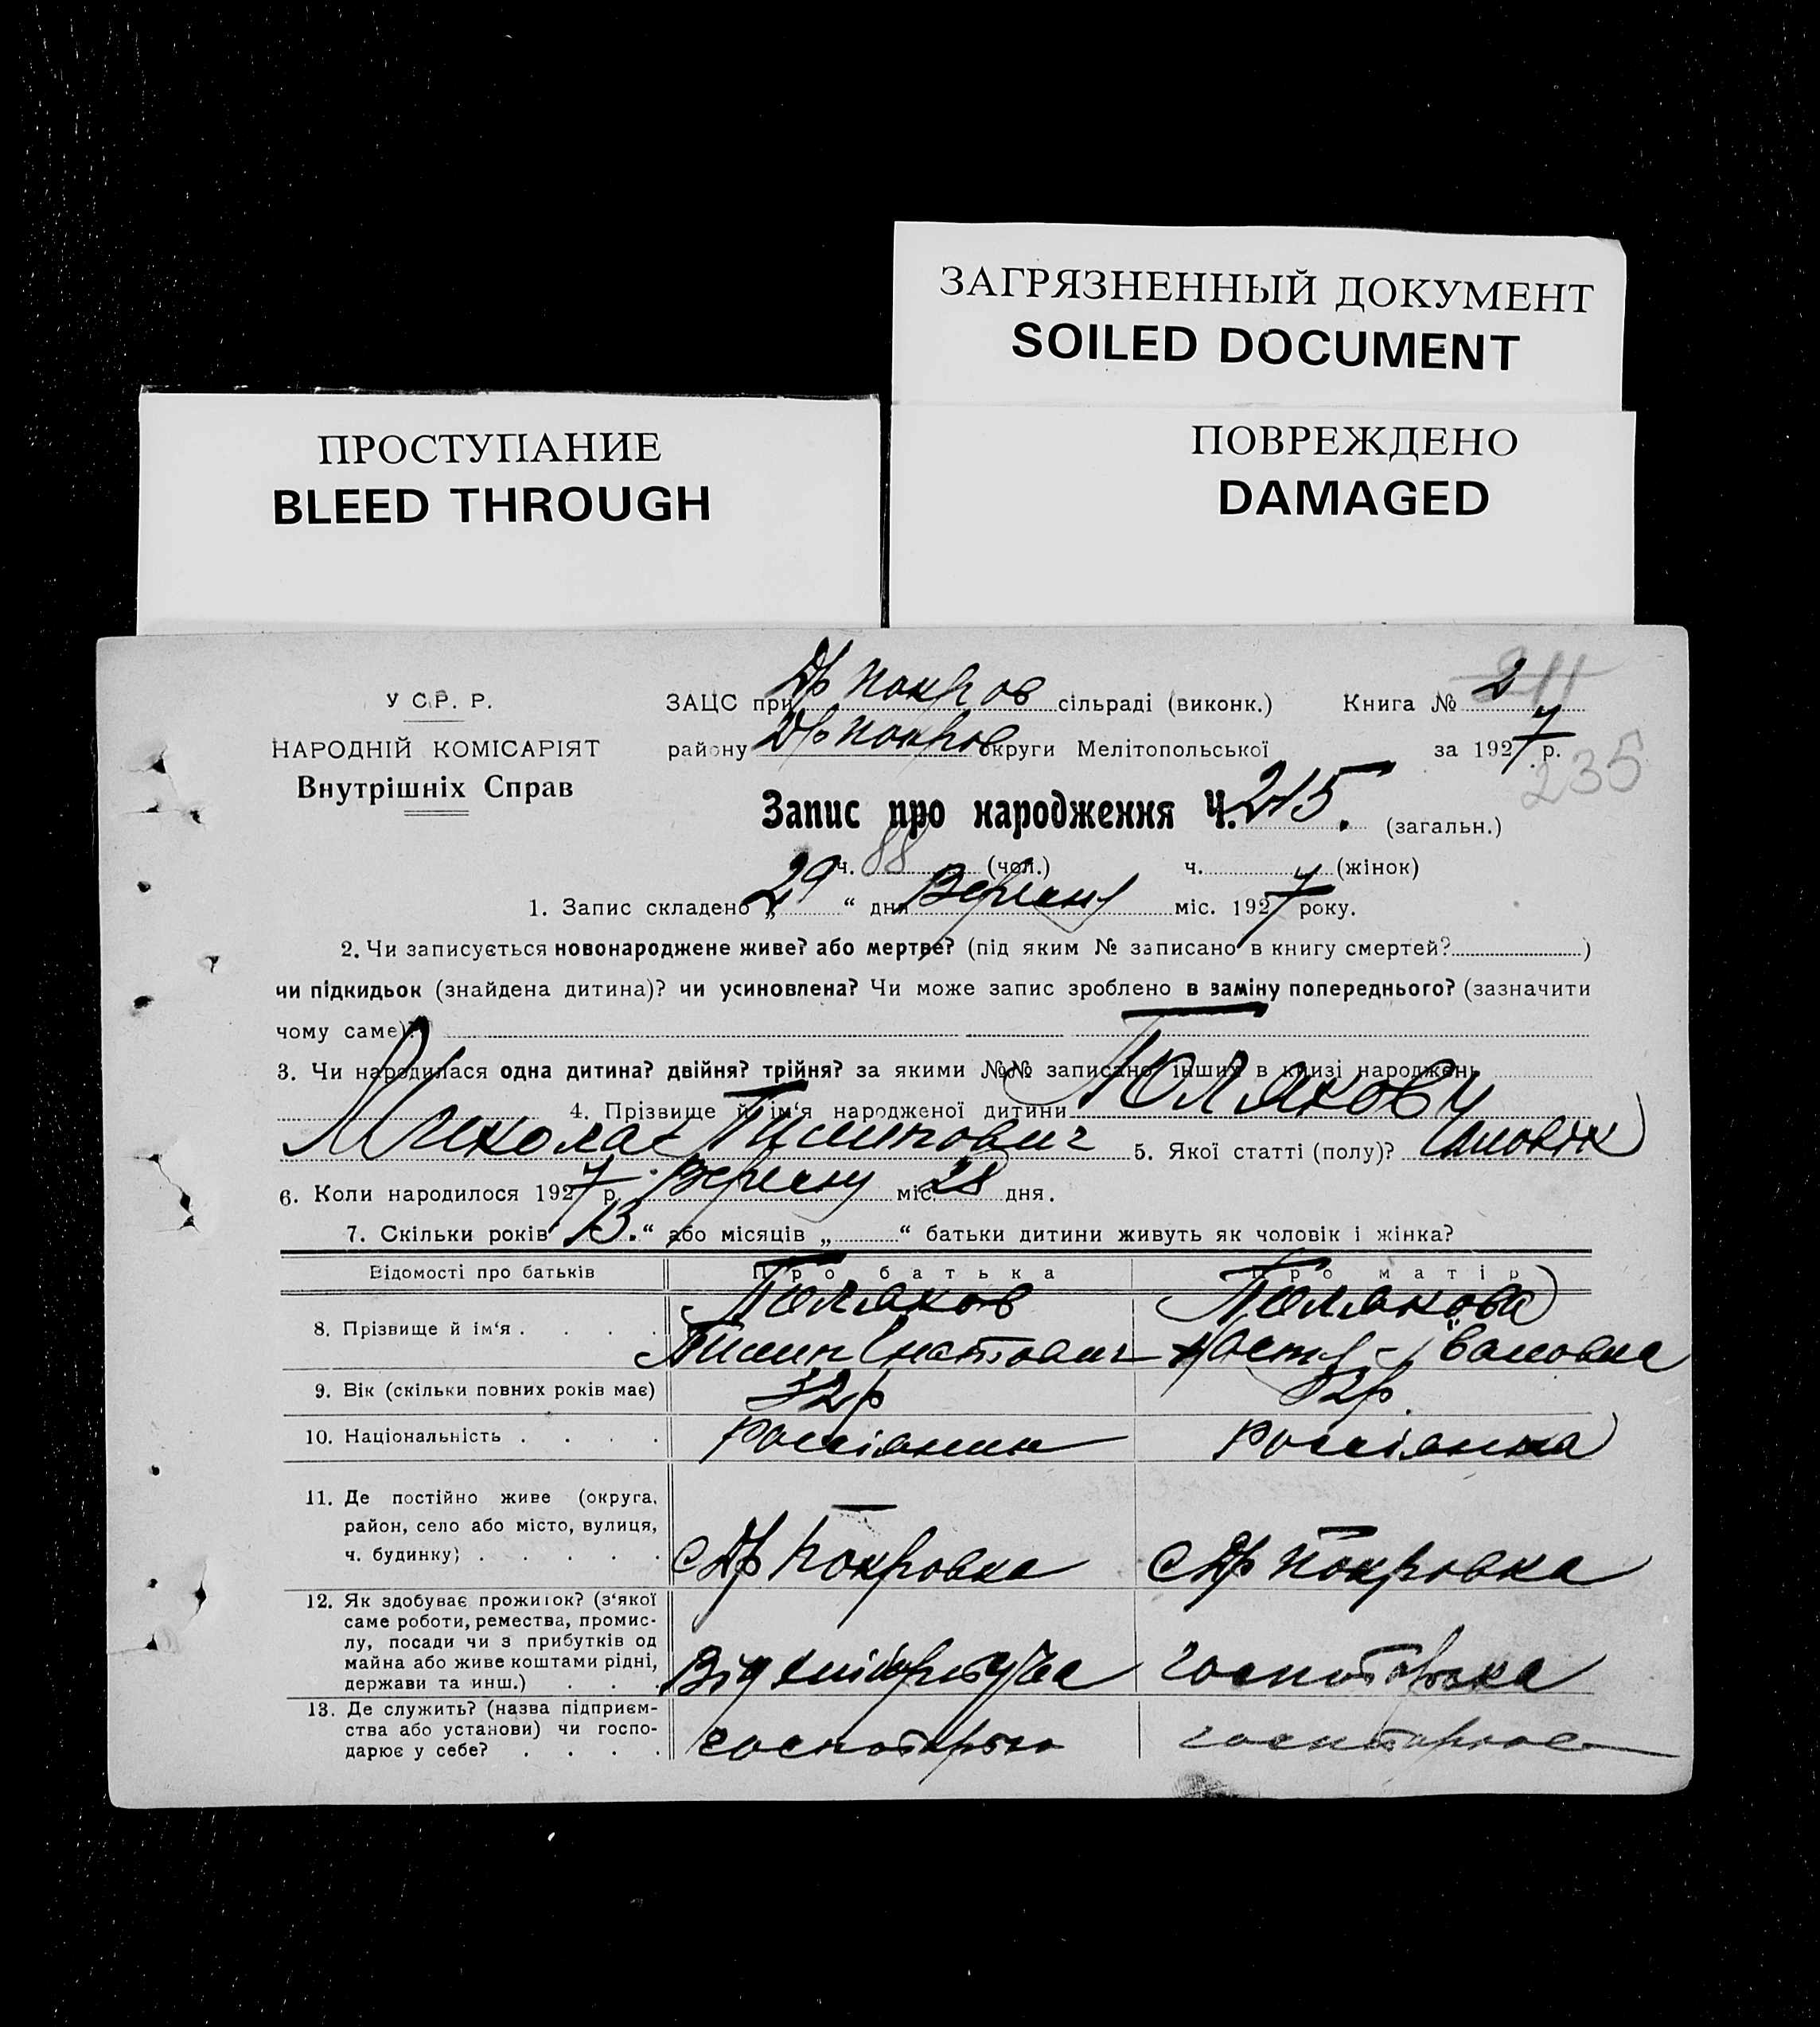 ЗАГРЯЗНЕННЫЙ ДОКУМЕНТ
SOILED DOCUMENT
ПРОСТУПАНИЕ
BLEED THROUGH
ПОВРЕЖДЕНО
DAMAGED
У С. Р. Р.
НАРОДНІЙ КОМІСАРІЯТ
Внутрішніх Справ
ЗАЦС при Др Покров сільраді (виконк.) Книга № 2
району Др Покров округи Мелітопольської за 1927 р.
235
Запис про народження Ч. 215. (загальн.)
ч. 88 (чол.) ч. (жінок)
1. Запис складено „29“ дня Вересня міс. 1927 року.
2. Чи записується новонароджене живе? або мертве? (під яким № записано в книгу смертей? )
чи підкидьок (знайдена дитина)? чи усиновлена? Чи може запис зроблено в заміну попереднього? (зазначити
чому саме)?
3. Чи народилася одна дитина? двійня? трійня? за якими №№ записано інших в книзі народжень
4. Прізвище й ім‘я народженої дитини Полякову
Микола Пилипович 5. Якої статті (полу)? Чоловік
6. Коли народилося 1927 р. Вересня міс. 28 дня.
7. Скільки років „13.“ або місяців „ “ батьки дитини живуть як чоловік і жінка?
Відомості про батьків Про батька Про матір
8. Прізвище й ім‘я . . . . Поляков Полякова
Пилип Івановна
9. Вік (скільки повних років має) 32р 32р.
10. Національність . . . . Россіянин Россіянка
11. Де постійно живе (округа,
район, село або місто, вулиця,
ч. будинку) . . . . . с Др Покровка с Др Покровка
12. Як здобуває прожиток? (з‘якої
саме роботи, ремества, промис-
лу, посади чи з прибутків од
майна або живе коштами рідні,
держави та инш.) . . . Від
13. Де служить? (назва підприєм-
ства або установи) чи госпо-
дарює у себе? . . . .